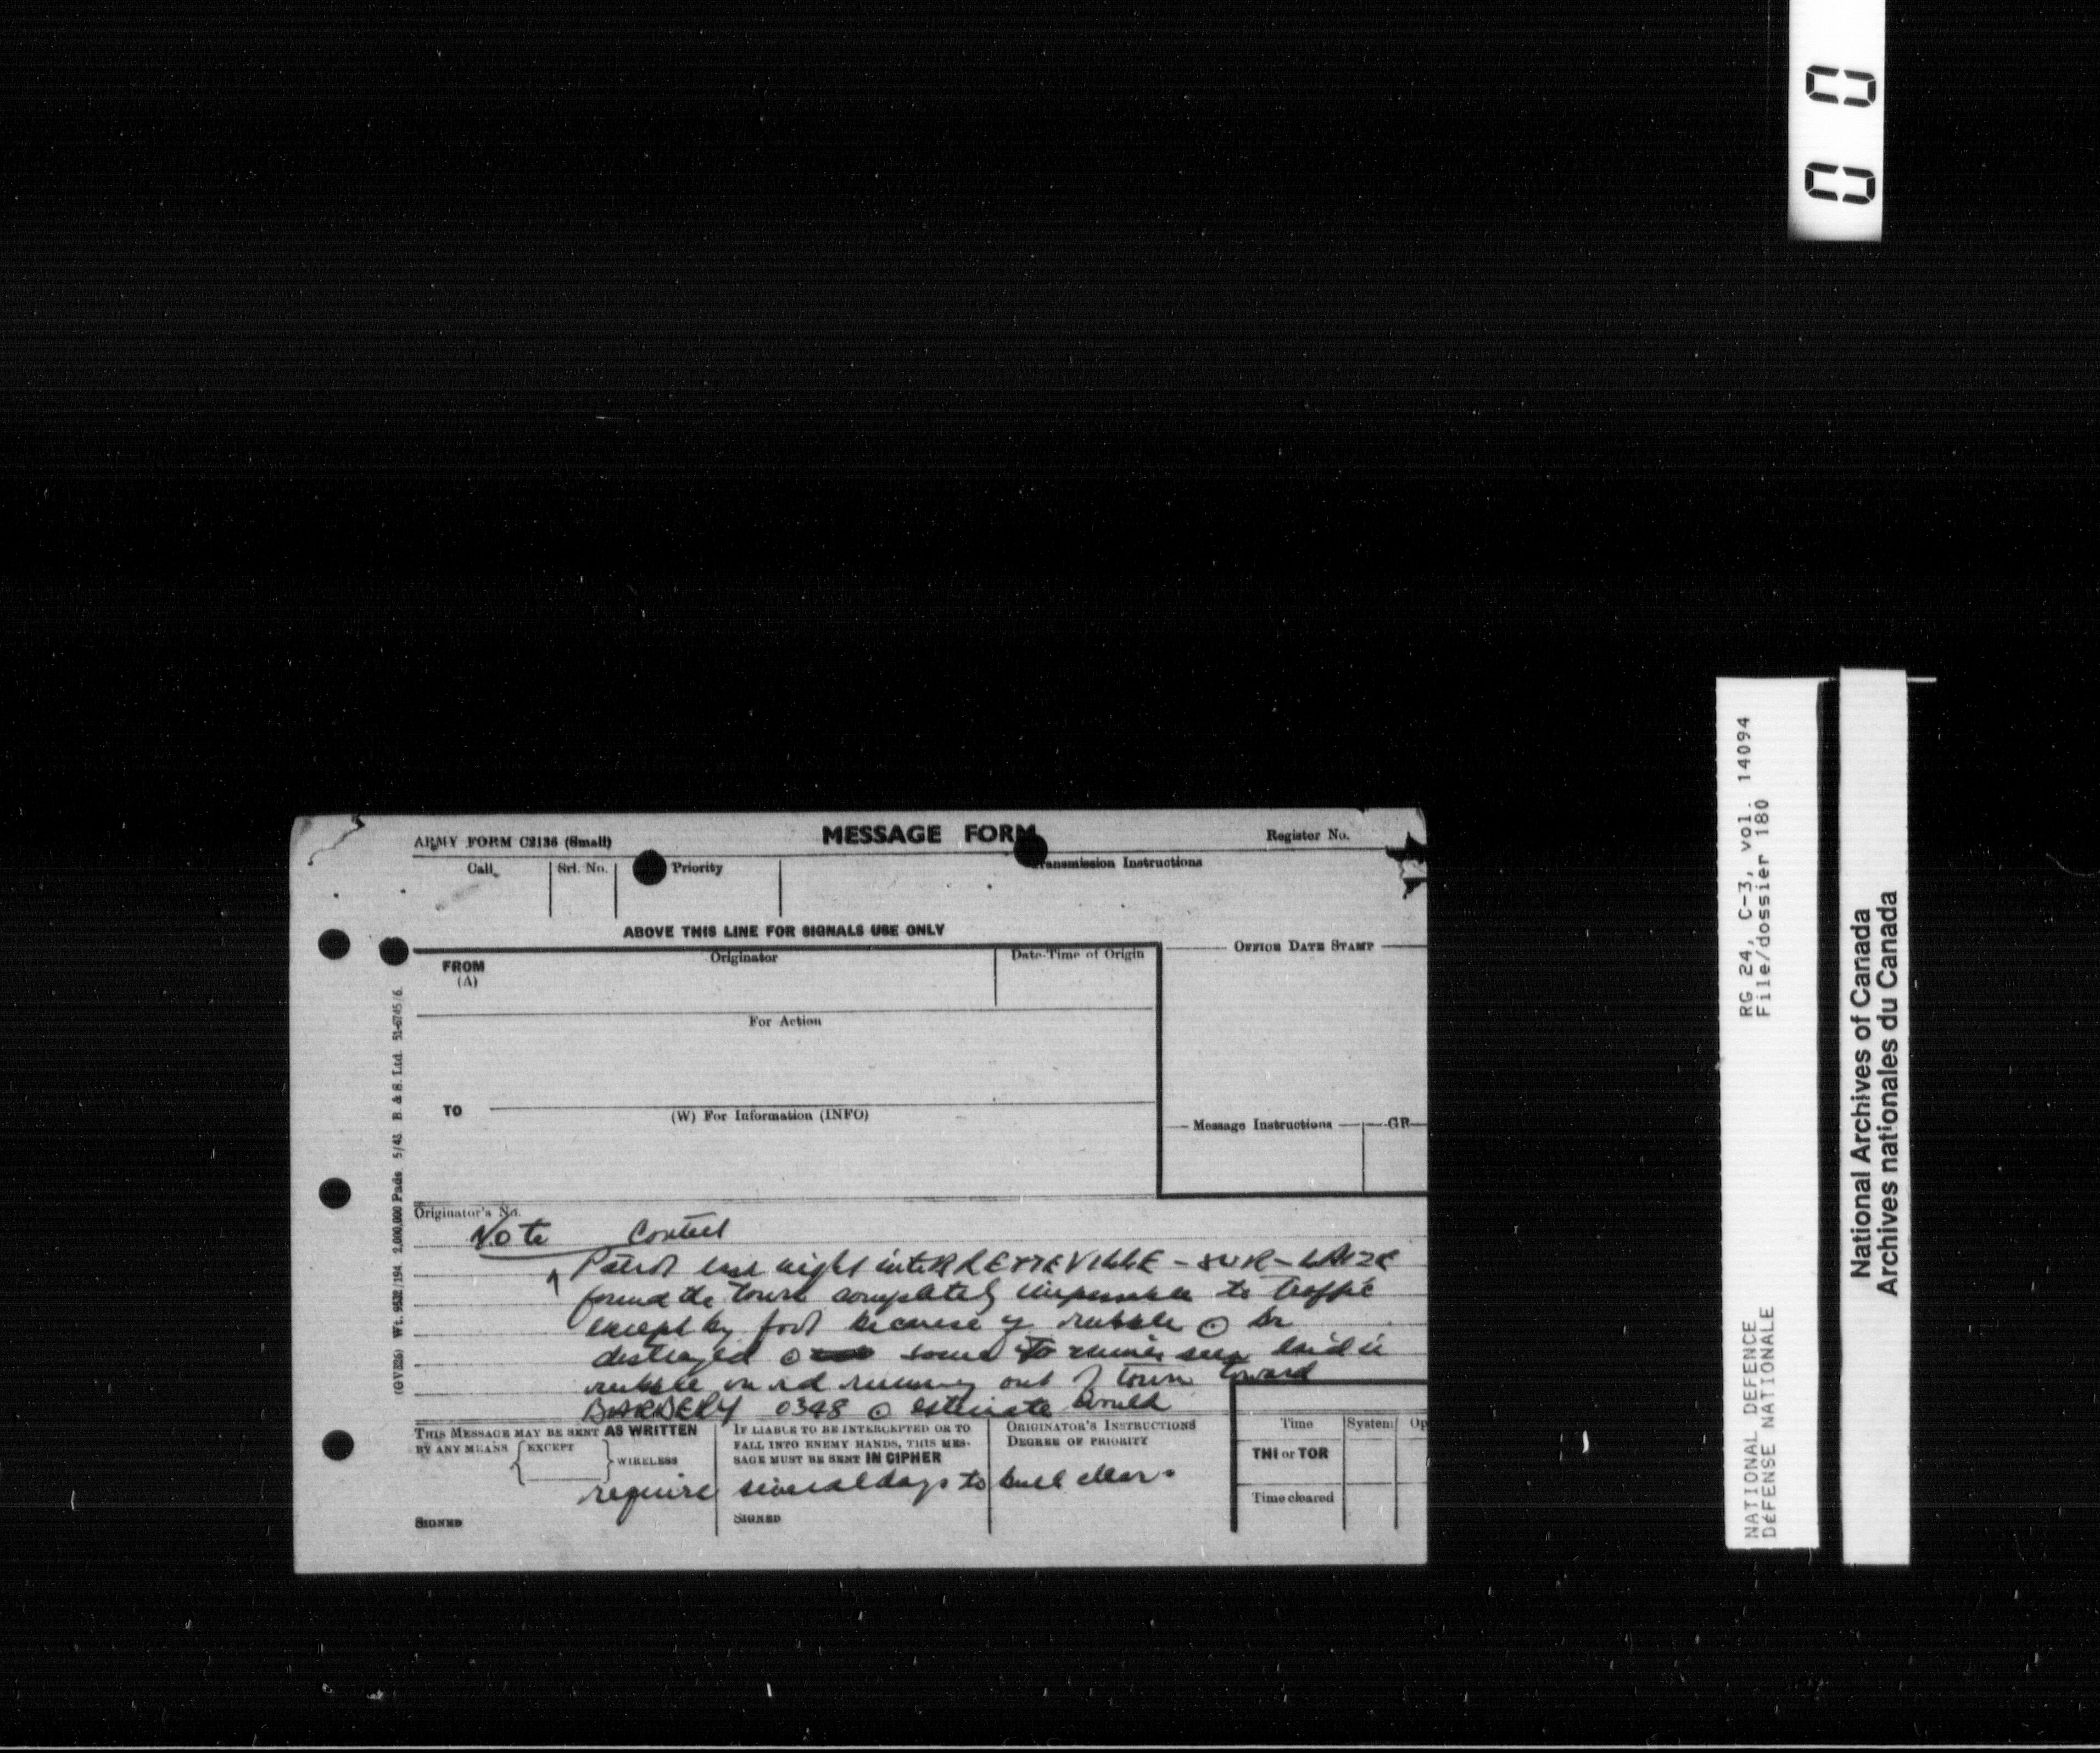 ARMY FORM C2136 (Small)
MESSAGE FORM
Register No.
Call
Srl. No.
Priority
Transmission Instructions
ABOVE THIS LINE FOR SIGNALS USE ONLY
FROM
(A)
Originator
Date-Time of Origin
OFFICE DATE STAMP
For Action
TO
(W) For Information (INFO)
Message Instructions
GR
Originator's No.
Note
Patrol last night into BRETTEVILLE-SUR-LAIZE
found the town completely impassable to traffic
except by foot because of rubble ⊙ br
destroyed ⊙ some mines seen laid in
rubble on rd running out of town toward
BARBERY 0348 ⊙ estimate would
THIS MESSAGE MAY BE SENT AS WRITTEN
BY ANY MEANS { EXCEPT } WIRELESS
IF LIABLE TO BE INTERCEPTED OR TO
FALL INTO ENEMY HANDS, THIS MES-
SAGE MUST BE SENT IN CIPHER
ORIGINATOR'S INSTRUCTIONS
DEGREE OF PRIORITY
Time
System
Op
THI or TOR
Time cleared
require several days to bull clear.
SIGNED
SIGNED
(GV326) Wt. 9532/194 2,000,000 Pads 5/43 B. & S. Ltd. 51-6745/6.
0 0
RG 24, C-3, vol. 14094
File/dossier 180
NATIONAL DEFENCE
DÉFENSE NATIONALE
National Archives of Canada
Archives nationales du Canada